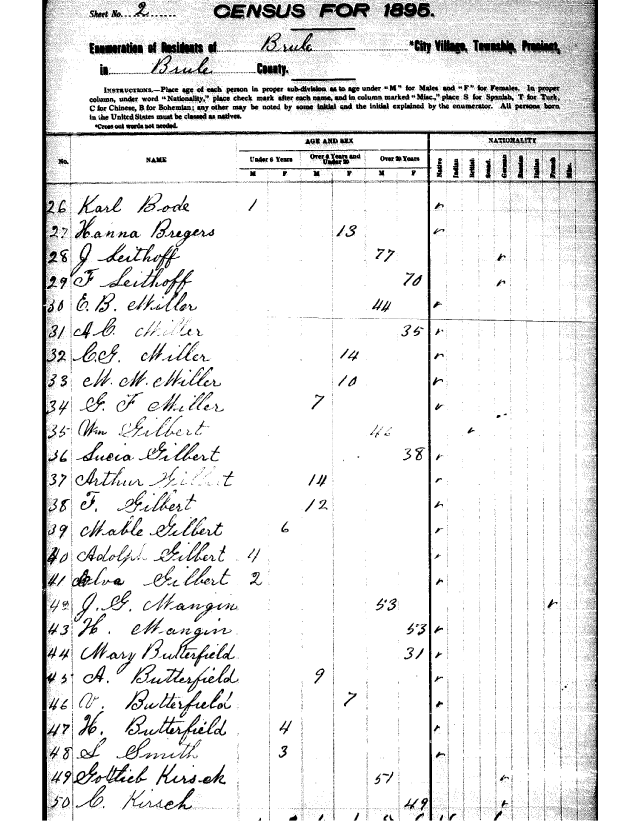 Sheet No. 2
CENSUS FOR 1895.
Enumeration of Residents of Brule *City Village, Township, Precinct,
in Brule County.
INSTRUCTIONS.—Place age of each person in proper sub-division as to age under "M" for Males and "F" for Females. In proper
column, under word "Nationality," place check mark after each name, and in column marked "Misc.," place S for Spanish, T for Turk,
C for Chinese, B for Bohemian; any other may be noted by some initial and the initial explained by the enumerator. All persons born
in the United States must be classed as natives.
*Cross out words not needed.
AGE AND SEX NATIONALITY
No. NAME Under 6 Years Over 6 Years and Under 20 Over 20 Years Native Indian British Scand. German Russian Italian French Misc.
M F M F M F
26 Karl Bode 1
27 Hanna Bregers 13
28 J Seithoff 77
29 F Seithoff 70
30 E. B. Miller 44
31 A C. Miller 35
32 C. G. Miller 14
33 M. M. Miller 10
34 G. F Miller 7
35 Wm Gilbert 46
36 Lucia Gilbert 38
37 Arthur Gilbert 14
38 F. Gilbert 12
39 Mable Gilbert 6
40 Adolph Gilbert 4
41 Alva Gilbert 2
42 J. G. Mangin 53
43 H. Mangin 53
44 Mary Butterfield 31
45 A. Butterfield 9
46 V. Butterfield 7
47 H. Butterfield 4
48 S Smith 3
49 Gottlieb Kirsch 51
50 C. Kirsch 49